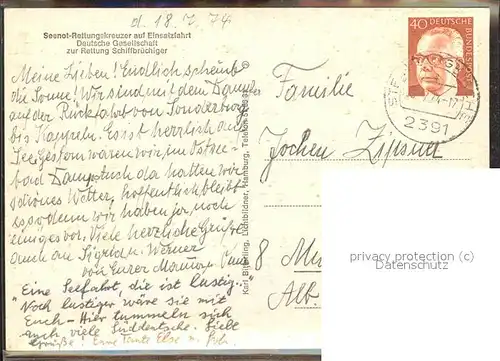 d. 18.7.74
Seenot-Rettungskreuzer auf Einsatzfahrt
Deutsche Gesellschaft
zur Rettung Schiffbrüchiger
Meine Lieben! Endlich scheint
die Sonne! Wir sind mit dem Dampfer
auf der Rückfahrt von Sonderburg
bis Kappeln. Es ist herrlich auf
See. Gestern waren wir im Ostsee-
bad Damp auch da hatten wir
schönes Wetter, hoffentlich bleibt
es so, denn wir haben ja noch
einiges vor. Viele herzliche Grüße
auch an Sigrid u. Werner
von Eurer
"Eine Seefahrt, die ist lustig..."
"Noch lustiger wäre sie mit
Euch - Hier tummeln sich
auch viele Süddeutsche. Viele
Grüße! Eure Tante Else u.
Karl Lichtbildner, Hamburg, Telefon
40
DEUTSCHE BUNDESPOST
2391
Familie
Jochen Zipsner
8
Alb
privacy protection (c)
Datenschutz